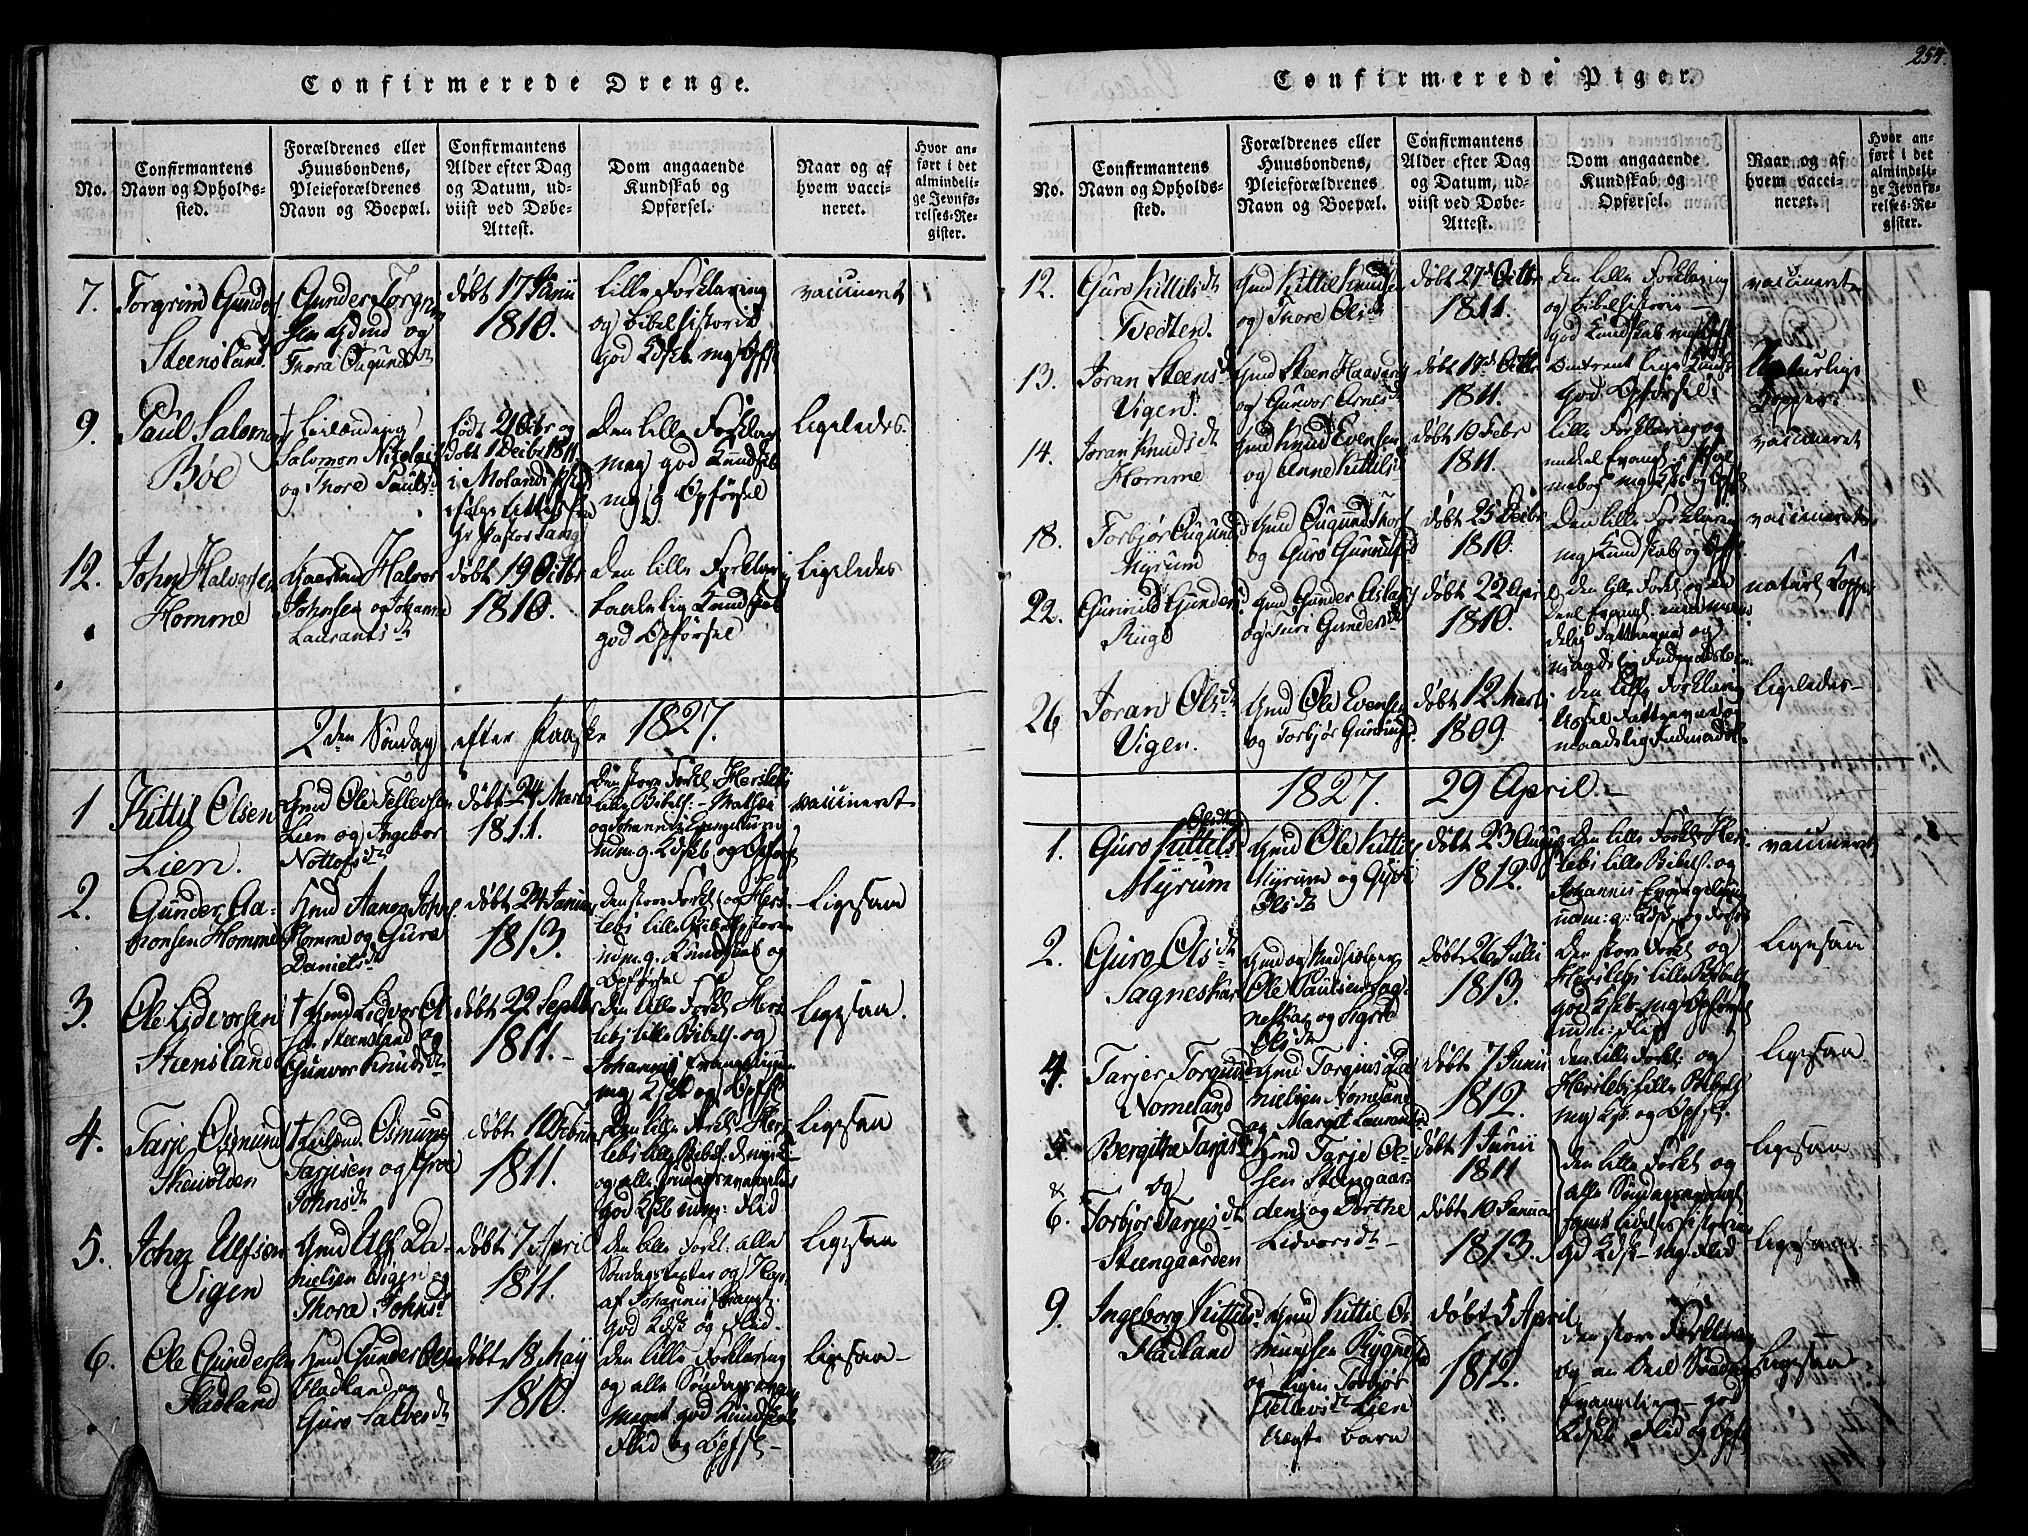 254.
Confirmerede Drenge.
No.
Confirmantens
Navn og Opholds-
sted.
Forældrenes eller
Huusbondens,
Pleieforældrenes
Navn og Boepæl.
Confirmantens
Alder efter Dag
og Datum, ud-
viist ved Døbe-
Attest.
Dom angaaende
Kundskab og
Opførsel.
Naar og af
hvem vacci-
neret.
Hvor an-
ført i det
almindeli-
ge Jevnfø-
relses-Re-
gister.
7.
Torgrim Gunders
Steensland.
Gunder Torgrim
sen
og
Thora Ougundsdt
døbt 17 Junii
1810.
Lille Forklaring
og Bibelhistorie
god Kdskb mg Opfsl
vaccineret
9.
Paul Salomon
Bøe
† Leilænding
Salomon Nikolais
og Thore Paulsd
født 21 Octbr og
døbt 1 Decbr 1811
i Molands
Hr Pastor Lang
Den lille Forklar
meg god Kundskb
mg g Opførsel
Ligeledes.
12.
John Halvorsen
Homme
Gaardmd Halvor
Johnsen og Johanna
Laurantsdt
døbt 19 Octbr
1810.
Den lille Forklaring
taalelig Kundskab
god Opførsel
Ligeledes
2den Søndag efter Paaske 1827.
1
Kittil Olsen
Lien.
Gmd Ole Tellevsen
Lien og Ingebor
Nottolfsdt
døbt 24 Marts
1811.
Den store Forkl. Herslebs
lille Bibelh. – Matthæi
og Johannis Evangelium
udm. g. Kdskb og Opførs
vaccineret
2.
Gunder Aa-
nonsen Homme
Gmd Aanon Johns.
Homme og Guro
Danielsdt
døbt 24 Januar
1813.
den store Forkl. og Hers-
lebs lille Bibelhistorie
udm. g. Kundskab og
Opførsel
Ligesaa
3.
Ole Lidvorsen
Steensland
† Gmd Lidvor Ol-
sen Steensland og
Gunvor Knudsdt
døbt 22 Septbr
1811.
den lille Forkl. Hers-
lebs lille Bibelh. og
Johannis Evangelium
mg Kdsk og Opfsl
Ligesaa.
4.
Tarje Osmunds
Skeivolden
† Leilænd. Osmund
Tarjesen og Groe
Johnsdt
døbt 10 Februar
1811.
Den lille Forkl. Hers-
lebs lille Bibelh.
og alle Søndagsevangelier
god Kdskb udm: Flid
Ligesaa
5.
John Ulfsen
Vigen
Gmd Ulf Da-
nielsen Vigen og
Thora Johnsd
døbt 7 April
1811.
den lille Forkl. alle
Søndagstexter og
af Johannis Evangl.
god Kdsk og Flid.
Ligesaa
6.
Ole Gundersen
Fladland
Gmd Gunder Ols
Fladland og
Guro Salvesdt
døbt 18 May
1810.
den lille Forklaring
og alle Søndagsevan
meget god Kundskab
Flid og Opfsl –
Ligesaa –
Confirmerede Piger.
No.
Confirmantens
Navn og Opholds-
sted.
Forældrenes eller
Huusbondens,
Pleieforældrenes
Navn og Boepæl.
Confirmantens
Alder efter Dag
og Datum, ud-
viist ved Døbe-
Attest.
Dom angaaende
Kundskab og
Opførsel.
Naar og af
hvem vacci-
neret.
Hvor an-
ført i det
almindeli-
ge Jevnfø-
relses-Re-
gister.
12.
Guro Kittilsdt
Tvedten.
Gmd Kittil Knudsen
og Thore Olsdt
døbt 27 Octbr
1811.
Den lille Forklaring
og Bibelhistorie –
god Kundskab mg Opfsl
vaccineret
13.
Joran Steensd
Vigen.
Gmd Steen Haavars
og Gunvor Arnesdt
døbt 17 Octbr
1811.
Omtrent lige Kunds
god Opførsel.
Naturlige
Kopper.
14.
Joran Knudsdt
Homme
Gmd Knud Evensen
og Anne Kittilsd
døbt 10 Febr
1811.
lille Forklaring og
vaccineret
18.
Torbjør Ougunds
Myrum
Gmd Ougund
og Guro Gunnulfsd
døbt 25 Decbr
1810.
Den lille Forklaring
mg Kundskab og Opfs
vaccineret
22.
Gunvild Gunders
Rige
Gmd Gunder Aslaks
og Turi Gundersdt
døbt 22 April
1810.
den lille Forkl. og en
Deel Evangl.
og
naturl Kopper
26
Joran Olsdt
Vigen.
Gmd Ole Evensen
og Torbjør Gunnulfsd.
døbt 12 Marts
1809.
den lille Forklaring
Ligeledes –
1827. 29 April. –
1.
Olsdtr
Guro Kittils
Myrum
Gmd Ole Kittils
Myrum og Gyro
Olsdt
døbt 23 August
1812.
Den lille Forkl. Hers-
lebs lille Bibelh. og
Johannis Evangelium
udm: g: Kdsk og Forhold
vaccineret
2.
Guro Olsdt
Sagneskar
Gmd og Medhjelper
Ole Paulsen Sag-
neskar og Sigrid
Olsdt
døbt 26 Julii
1813.
Den store Forkl og
Herslebs lille Bibelh
god Kdskb mg Opførsel
udm: Flid
Ligesaa
4.
Tarjer Torgiusd
Nomeland
Gmd Torgius Da
nielsen Nomeland
og Margit Laurantsd
døbt 7 Junii
1812.
den lille Forkl. og
Herslebs lille Bibelh
mg Kskb og Opfsl.
Ligesaa
5.
&
6.
Bergithe Tarjesd
og
Torbjør Tarjesdt
Steengaarden
Gmd Tarje Ol-
sen Steengaar-
den og Berthe
Lidvorsdt –
døbt 1 Junii
1811
døbt 10 Januar
1813.
den lille Forkl og
alle Søndagsevangl
samt Lidelseshistorien
gd Kdsk – mg Flid
Ligesaa
Ligesaa
9.
Ingeborg Kittilsd.
Fladland
Gmd Kittil Os-
mundsen Rygnestad
og Pigen Torbjør
Tellevsdt Lien
Uægte Barn
døbt 5 April
1812.
den store Forklaring
og en Deel Søndags
evangelier – god
Kdskb, Flid og Opfsl
Ligesaa